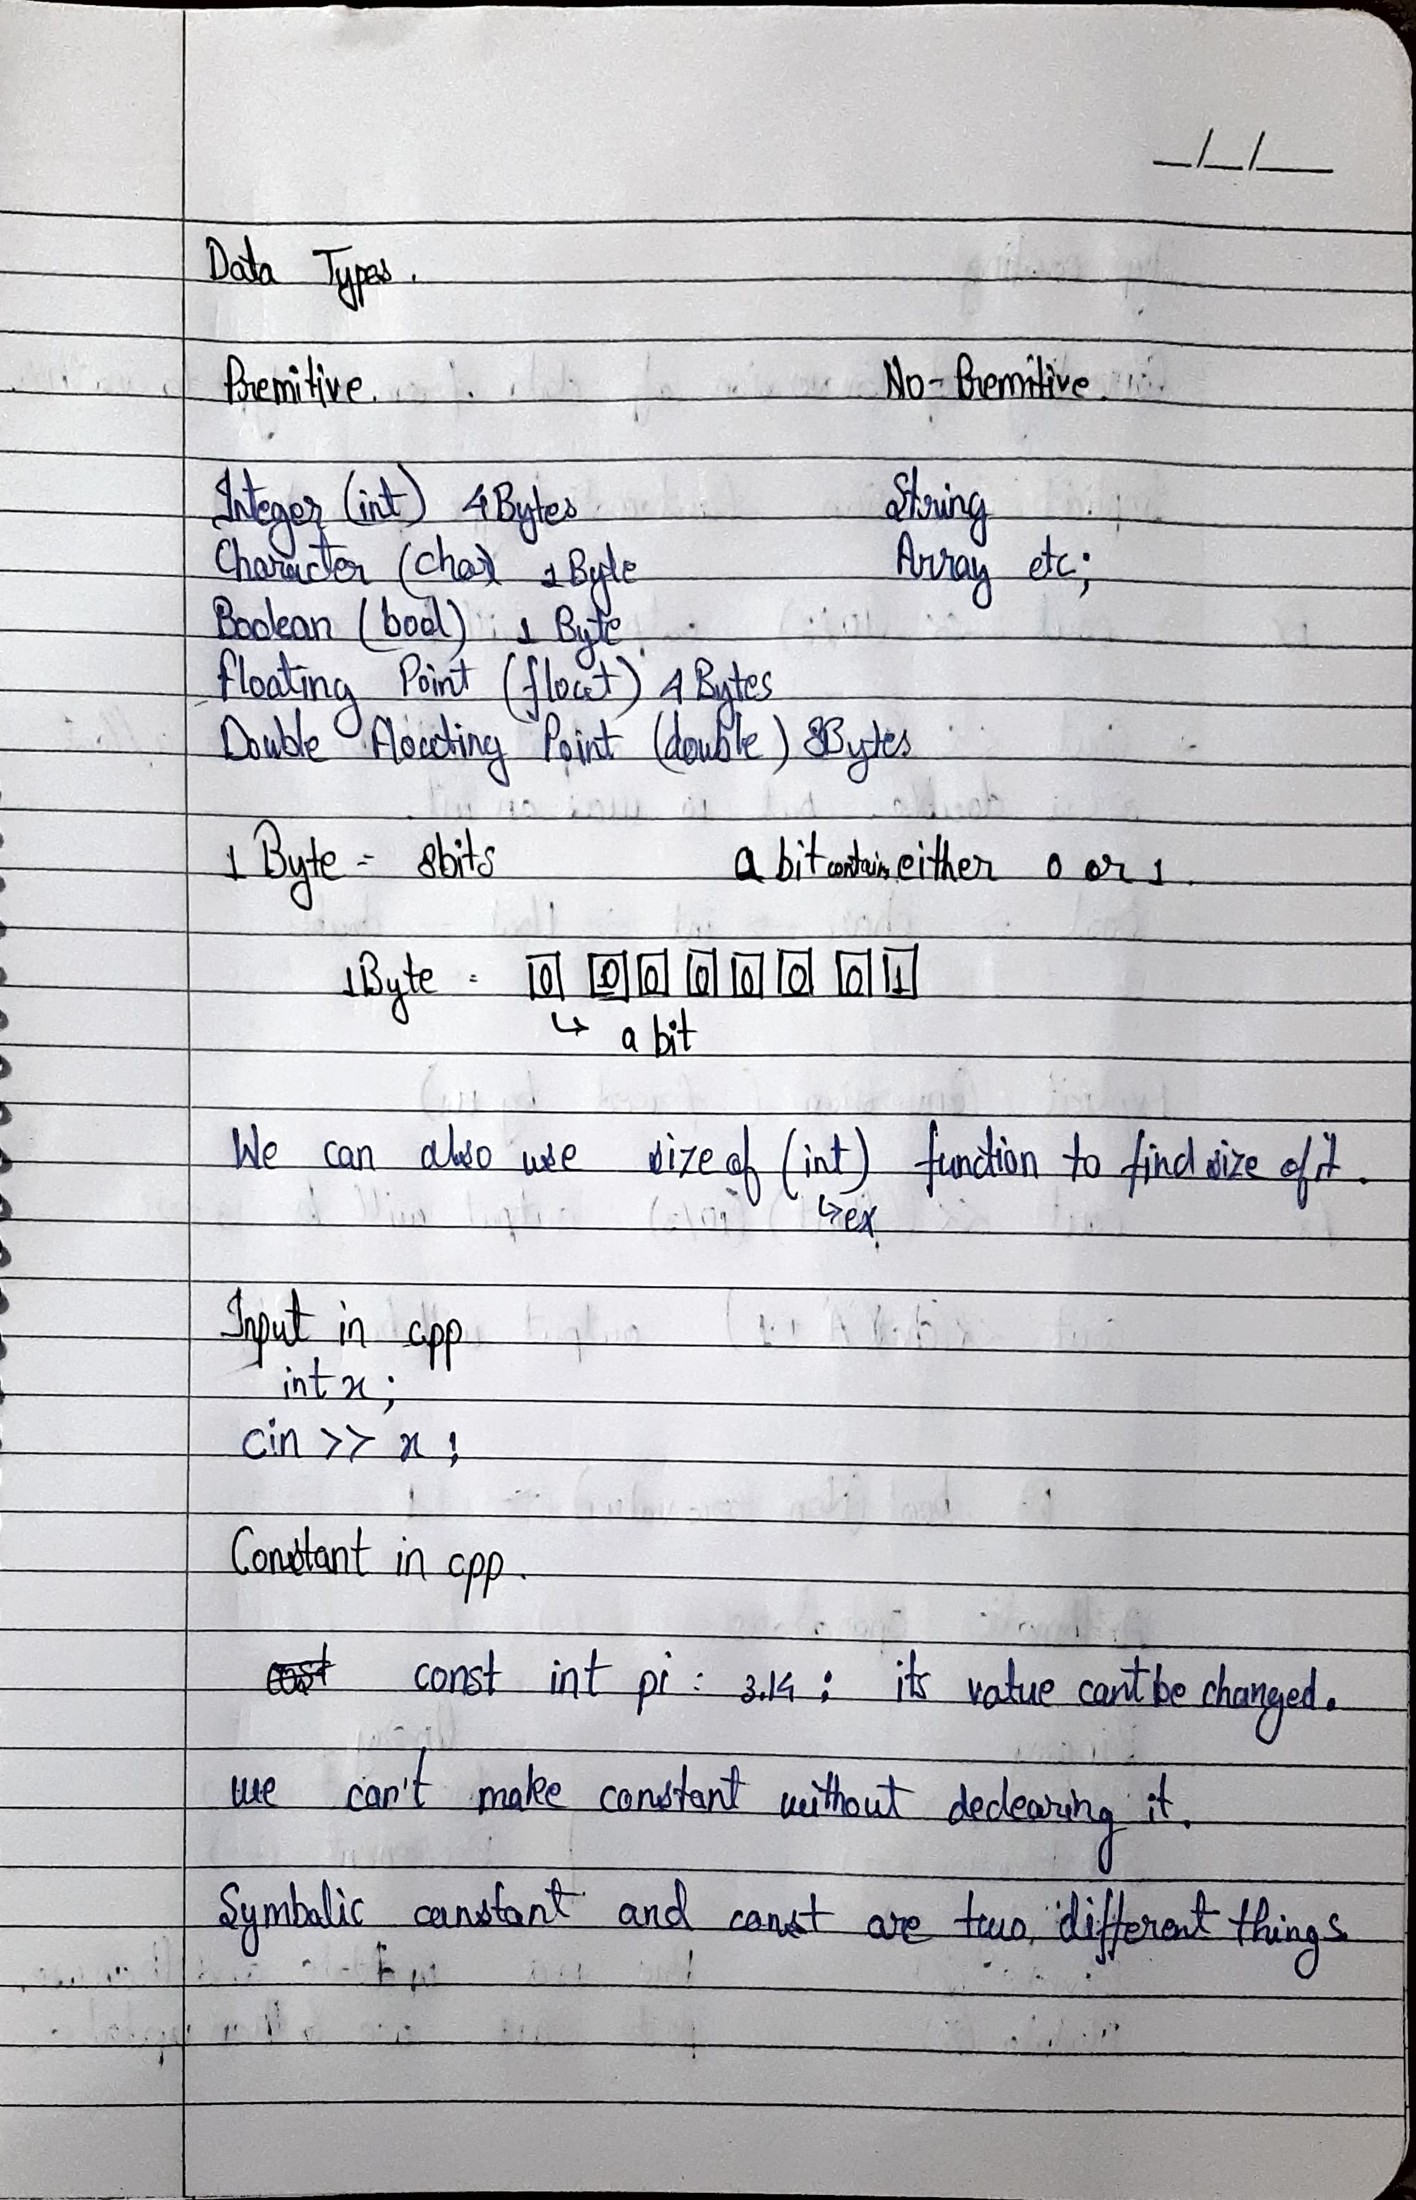 Data Types.
Premitive. No-Premitive.
Integer (int) 4 Bytes String
Character (char) 1 Byte Array etc;
Boolean (bool) 1 Byte
floating Point (float) 4 Bytes
Double floating Point (double) 8Bytes
1 Byte = 8bits a bit contains either 0 or 1.
1Byte = 0 0 0 0 0 0 0 1
↳ a bit
We can also use size of (int) function to find size of it.
↳ex
Input in cpp
int x;
cin >> x;
Constant in cpp.
const int pi = 3.14; its value cant be changed.
we can't make constant without declearing it.
Symbolic constant and const are two different things